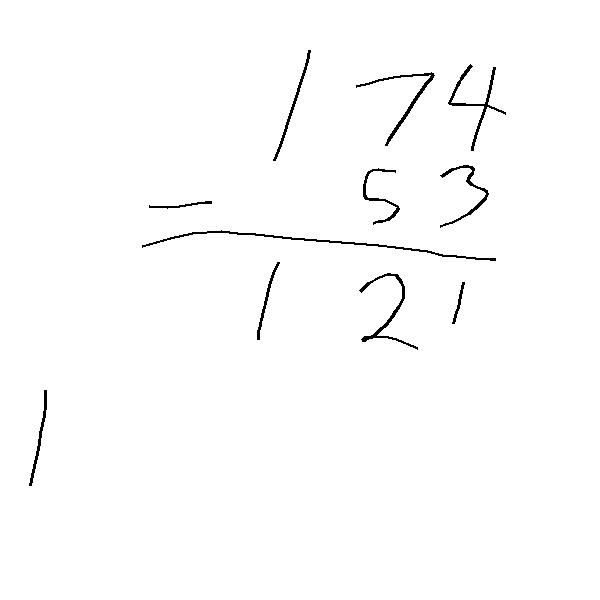 174
- 53
121
1